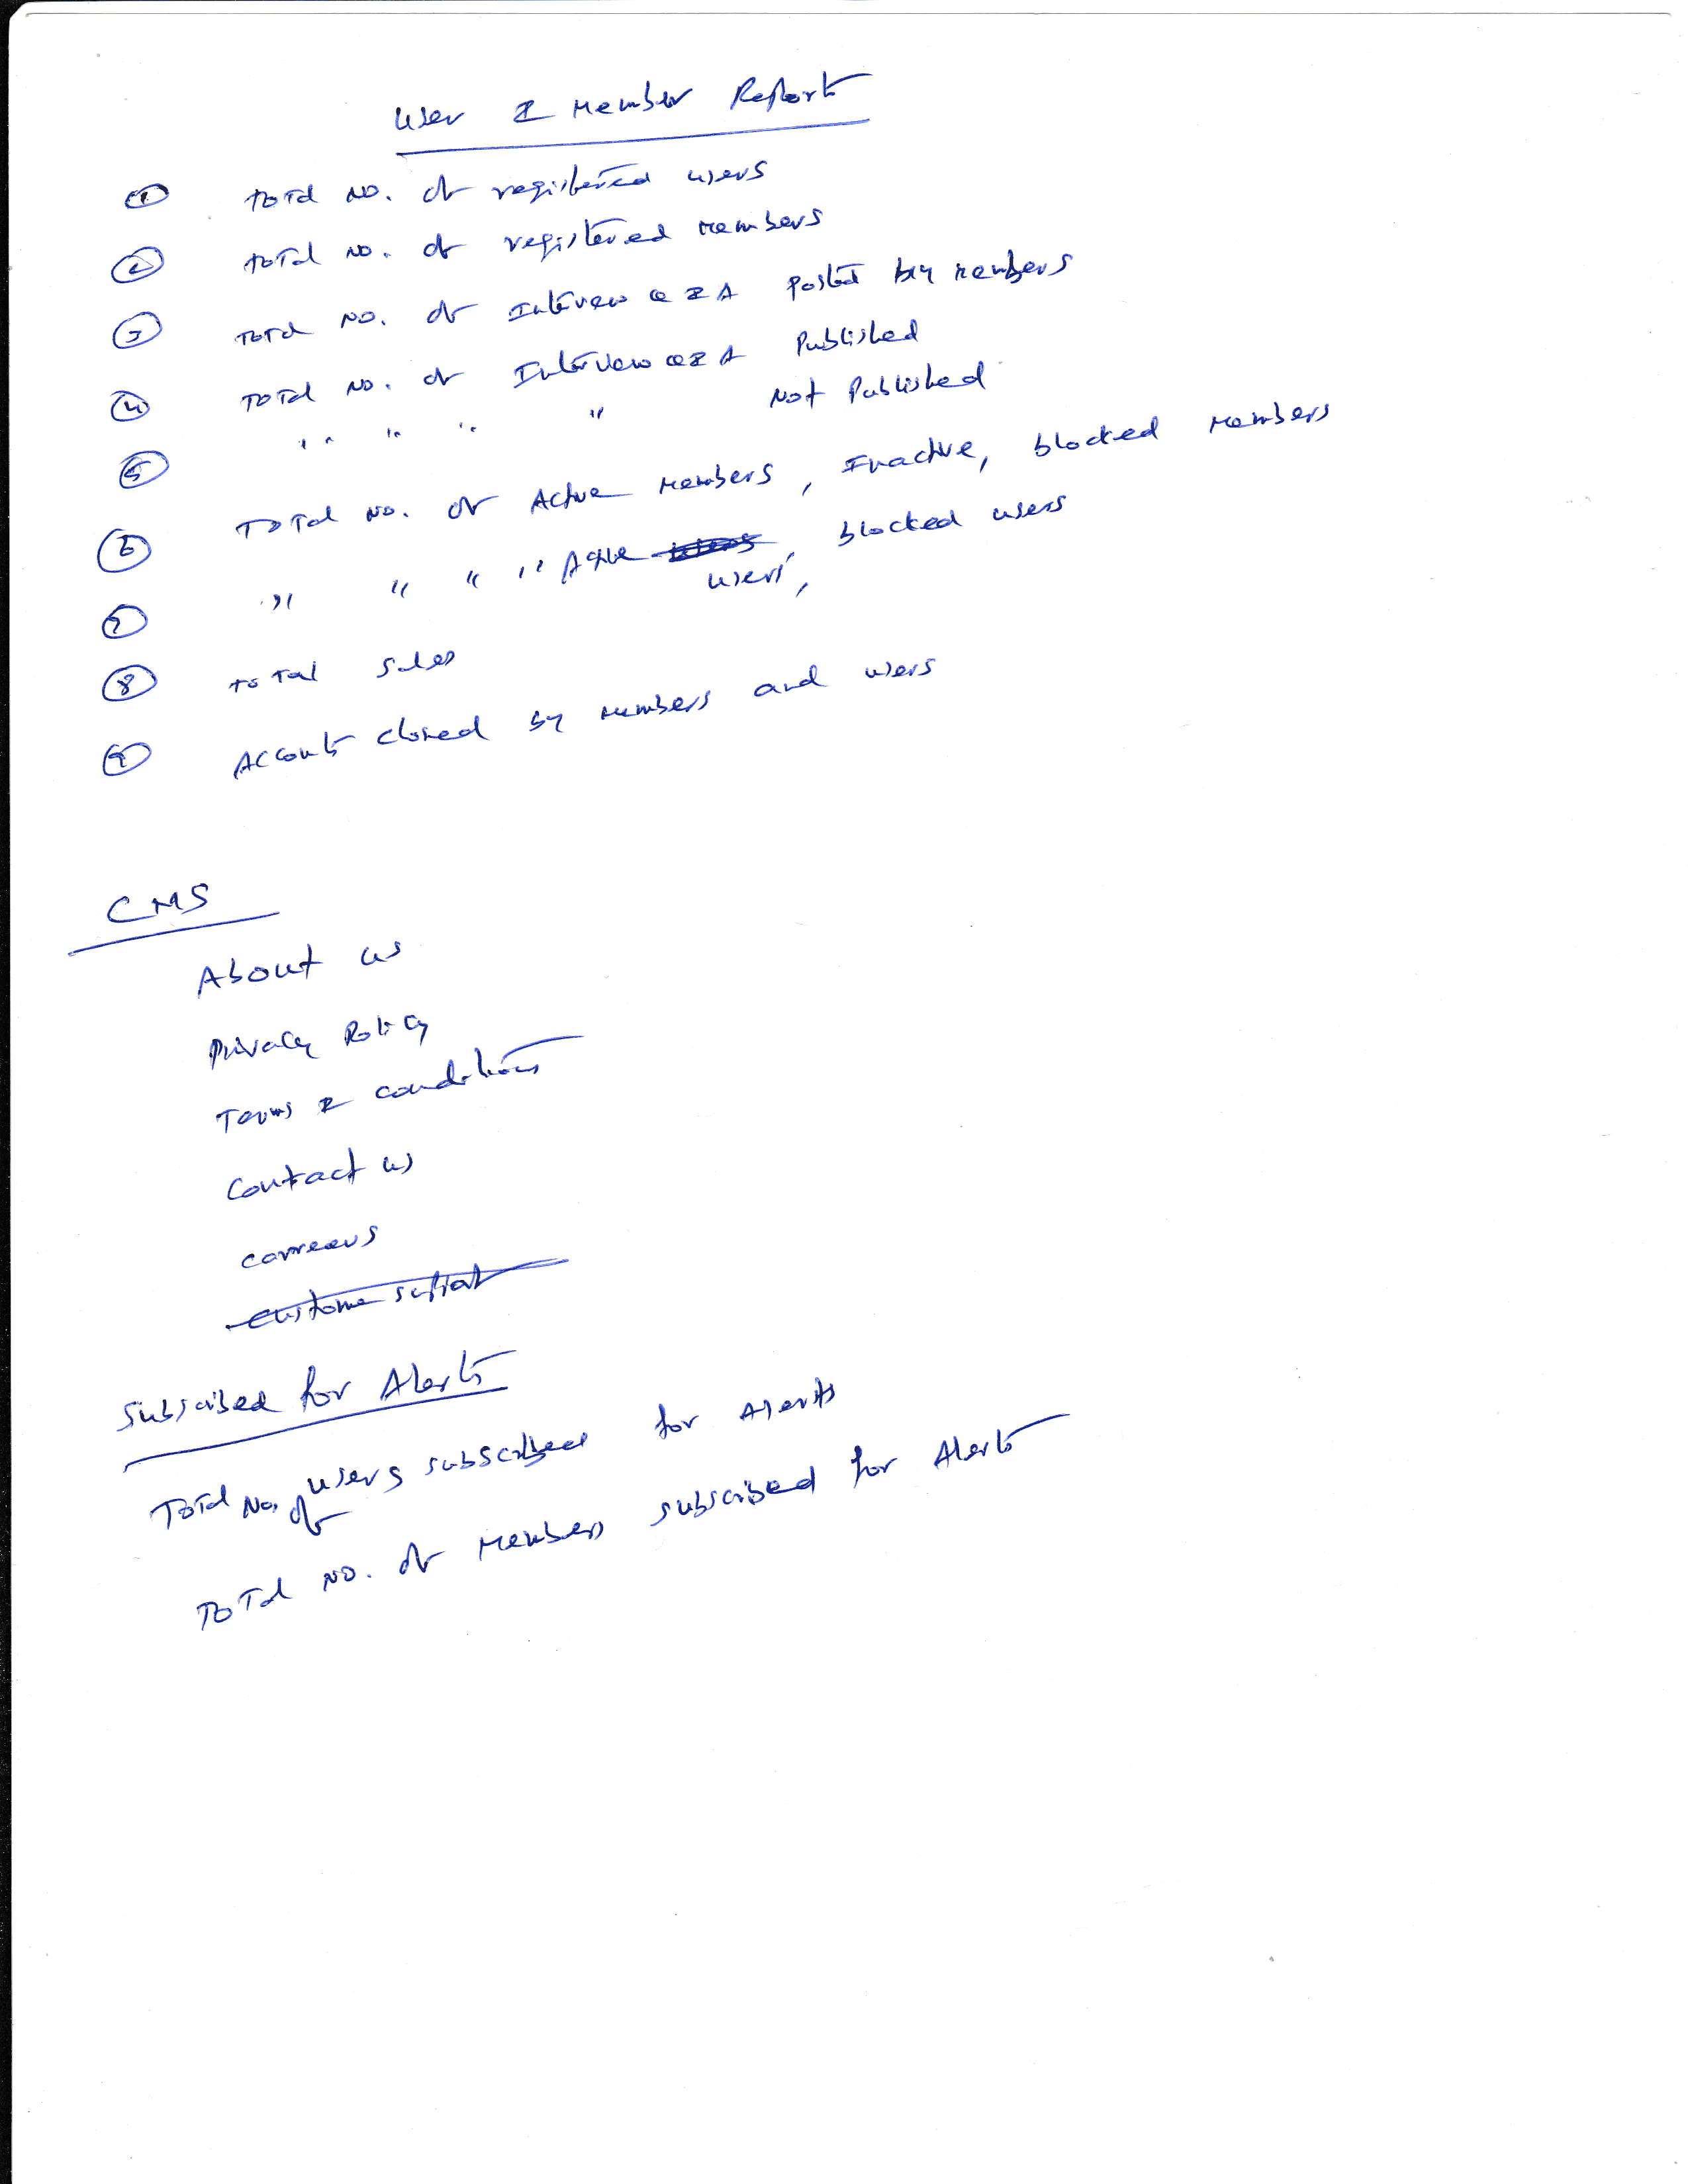 User & Member Reports
① Total No. of registered users
② Total No. of registered members
③ Total No. of Interview Q & A Posted by members
④ Total No. of Interview Q & A Published
⑤ " " " " Not Published
⑥ Total No. of Active members, Inactive, blocked members
⑦ " " " " Active users, blocked users
⑧ Total Sales
⑨ Accounts closed by members and users
CMS
About us
Privacy Policy
Terms & conditions
Contact us
carreers
Subscibed for Alerts
Total No. of users subscribed for Alerts
Total No. of Members subscibed for Alerts